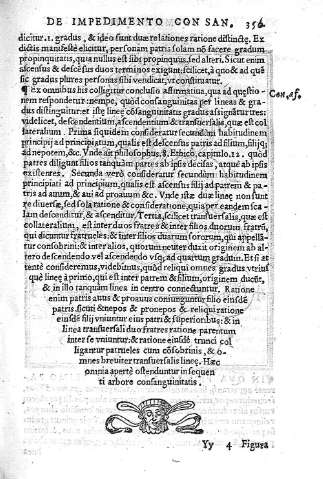 DE IMPEDIMENTO CON SAN. 356
dicitur. 1. gradus, & ideo sunt duæ relationes ratione distinctę. Ex
dictis manifestè elicitur, personam patris solam nō facere gradum
propinquitatis, qua nullus est sibi propinquus, sed alteri. Sicut enim
ascensus & descēsus duo terminos exigunt: scilicet, à quo & ad quē
sic gradus plures personas sibi vendicat, vt constituatur.
¶ Ex omnibus his colligitur conclusio affirmatiua, qua ad quæstio-
nem respondetur: nempe, quòd consanguinitas per lineas & gra-
dus distinguitur: et istę lineę cōsanguinitatis gradus assignātur tres:
videlicet, descendentium, ascendentium & transuersalis, quæ est col
lateralium. Prima siquidem consideratur secundùm habitudinem
principij ad principiatum, qualis est descensus patris ad filium, filij q;
ad nepotem, &c. Vnde ait philosophus, 8. Ethico. capitulo. 12. quòd
partes diligunt filios tanquàm partes ab ipsis decisas, atque ab ipsis
existentes. Secunda verò consideratur secundùm habitudinem
principiati ad principium, qualis est ascensus filij ad patrem & pa-
tris ad auum, & aui ad proauum &c. Vnde istæ duæ lineę non sunt
re diuersæ, sed sola ratione & consideratione, quia per eandem sca-
lam descenditur, & ascenditur. Tertia, scilicet transuersalis, quæ est
collateralium, est inter duos fratres & inter filios duorum fratrū,
qui dicuntur fratrueles: & inter filios duarum sororum, qui appellā-
tur consobrini: & inter alios, quorum neuter ducit originem ab al-
tero descendendo vel ascendendo vsq; ad quartum gradū. Et si at-
tentè consideremus, videbimus, quòd reliqui omnes gradus vtrius
quę lineę à primo, qui est inter patrem & filium, originem ducūt,
& in illo tanquàm linea in centro connectuntur. Ratione
enim patris auus & proauus coniunguntur filio eiusdē
patris, sicuti & nepos & pronepos & reliqui ratione
eiusdē filij vniuntur eius patri & superioribus: & in
linea transuersali duo fratres ratione parentum
inter se vniuntur: & ratione eiusdē trunci col
ligantur patrueles cum cōsobrinis, & o-
mnes breuiter transuersalis lineę. Hæc
omnia apertè ostenduntur in sequen
ti arbore consanguinitatis.
Con. af.
Yy 4 Figura